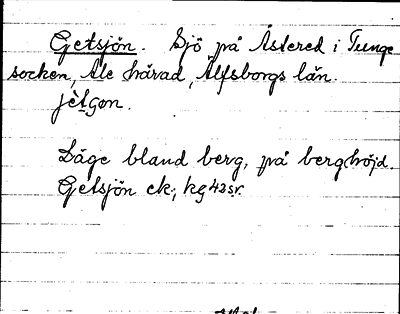 Getsjön. Sjö på Åstered i Tunge
socken, Ale härad, Älfsborgs län.
jètgøn.
Läge bland berg, på berghöjd.
Getsjön ek., kg 43 sr.